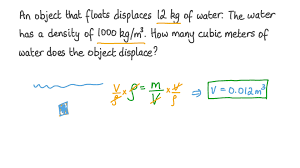 An object that floats displaces 12 kg of water. The water
has a density of 1000 kg/m³. How many cubic meters of
water does the object displace?
V/ρ × ρ = m/V × V/ρ ⇒ V = 0.012 m³